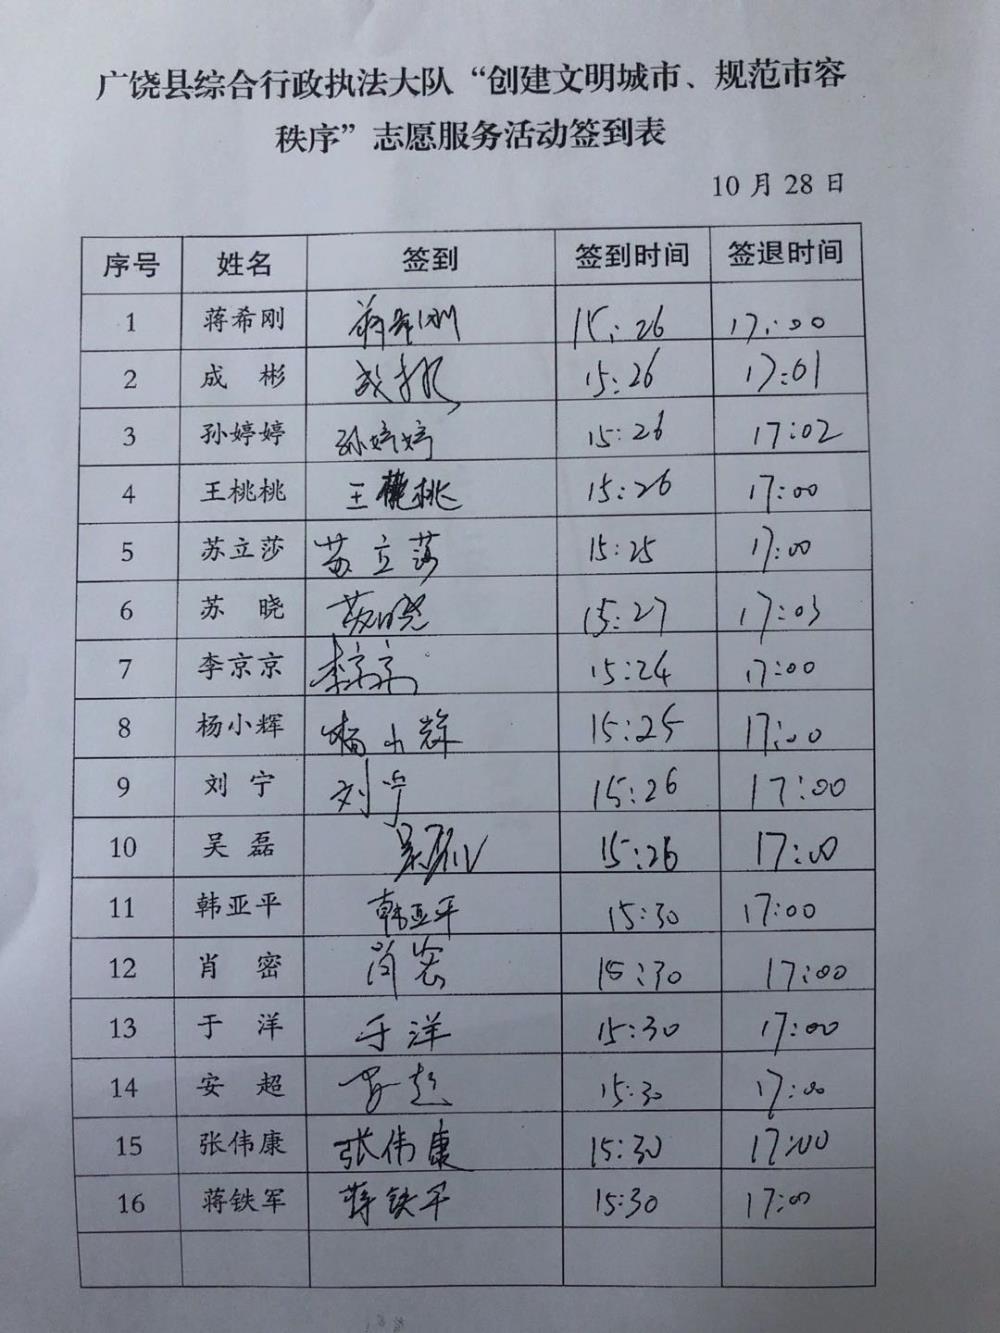 广饶县综合行政执法大队“创建文明城市、规范市容
秩序”志愿服务活动签到表
10月28日
序号 姓名 签到 签到时间 签退时间
1 蒋希刚 蒋希刚 15:26 17:00
2 成 彬 成彬 15:26 17:01
3 孙婷婷 孙婷婷 15:26 17:02
4 王桃桃 王桃桃 15:26 17:00
5 苏立莎 苏立莎 15:25 17:00
6 苏 晓 苏晓 15:27 17:03
7 李京京 李京京 15:24 17:00
8 杨小辉 杨小辉 15:25 17:00
9 刘 宁 刘宁 15:26 17:00
10 吴 磊 吴磊 15:26 17:00
11 韩亚平 韩亚平 15:30 17:00
12 肖 密 肖密 15:30 17:00
13 于 洋 于洋 15:30 17:00
14 安 超 安超 15:30 17:00
15 张伟康 张伟康 15:30 17:00
16 蒋铁军 蒋铁军 15:30 17:00